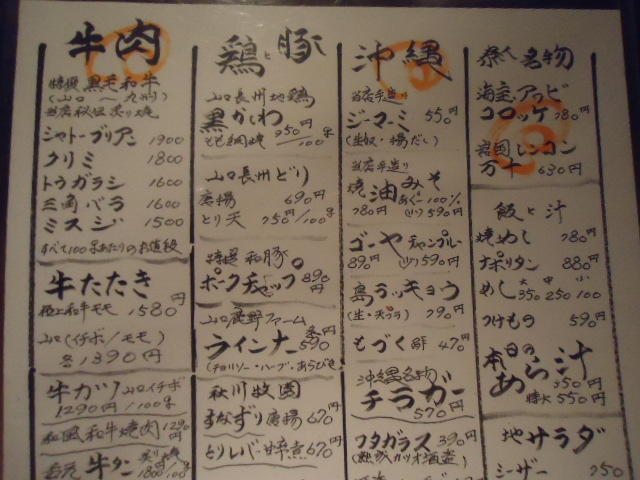 牛肉
特撰 黒毛和牛
(山口〜九州)
当店秘伝炙り焼
シャトーブリアン 1900
クリミ 1800
トウガラシ 1600
三角バラ 1600
ミスジ 1500
すべて100gあたりのお値段
牛たたき
極上和牛モモ 1580円
山口(イチボ/モモ)
各1390円
牛ガリ 山口イチボ
1290円/100g
和風和牛焼肉 1290円
牛タン 炙り焼 1800/100g
鶏と豚
山口長州地鶏
黒かしわ
もも網焼 950円/100g
山口長州どり
唐揚 690円
とり天 750円/100g
特撰 和豚
ポークチャップ 890円
山口鹿野ファーム
ウインナー 590円
(チョリソー・ハーブ・あらびき)
秋川牧園
すなずり唐揚 670円
とりレバー甘辛煮 670円
沖縄
当店手造り
ジーマーミ 550円
(生奴・揚だし)
当店手造り
焼油みそ
780円 あぐー100% (小)590円
ゴーヤチャンプルー
890円 (小)590円
島ラッキョウ
(生・天プラ) 790円
もづく酢 470円
沖縄名物
チラガー
570円
フタガラス 390円
泰人名物
海草アオビ
コロッケ 780円
岩国レンコン
万十 630円
飯と汁
焼めし 780円
ナポリタン 880円
めし 大350 中250 小100
つけもの 590円
本日の
あら汁
350円
特大550円
地サラダ
シーザー 750